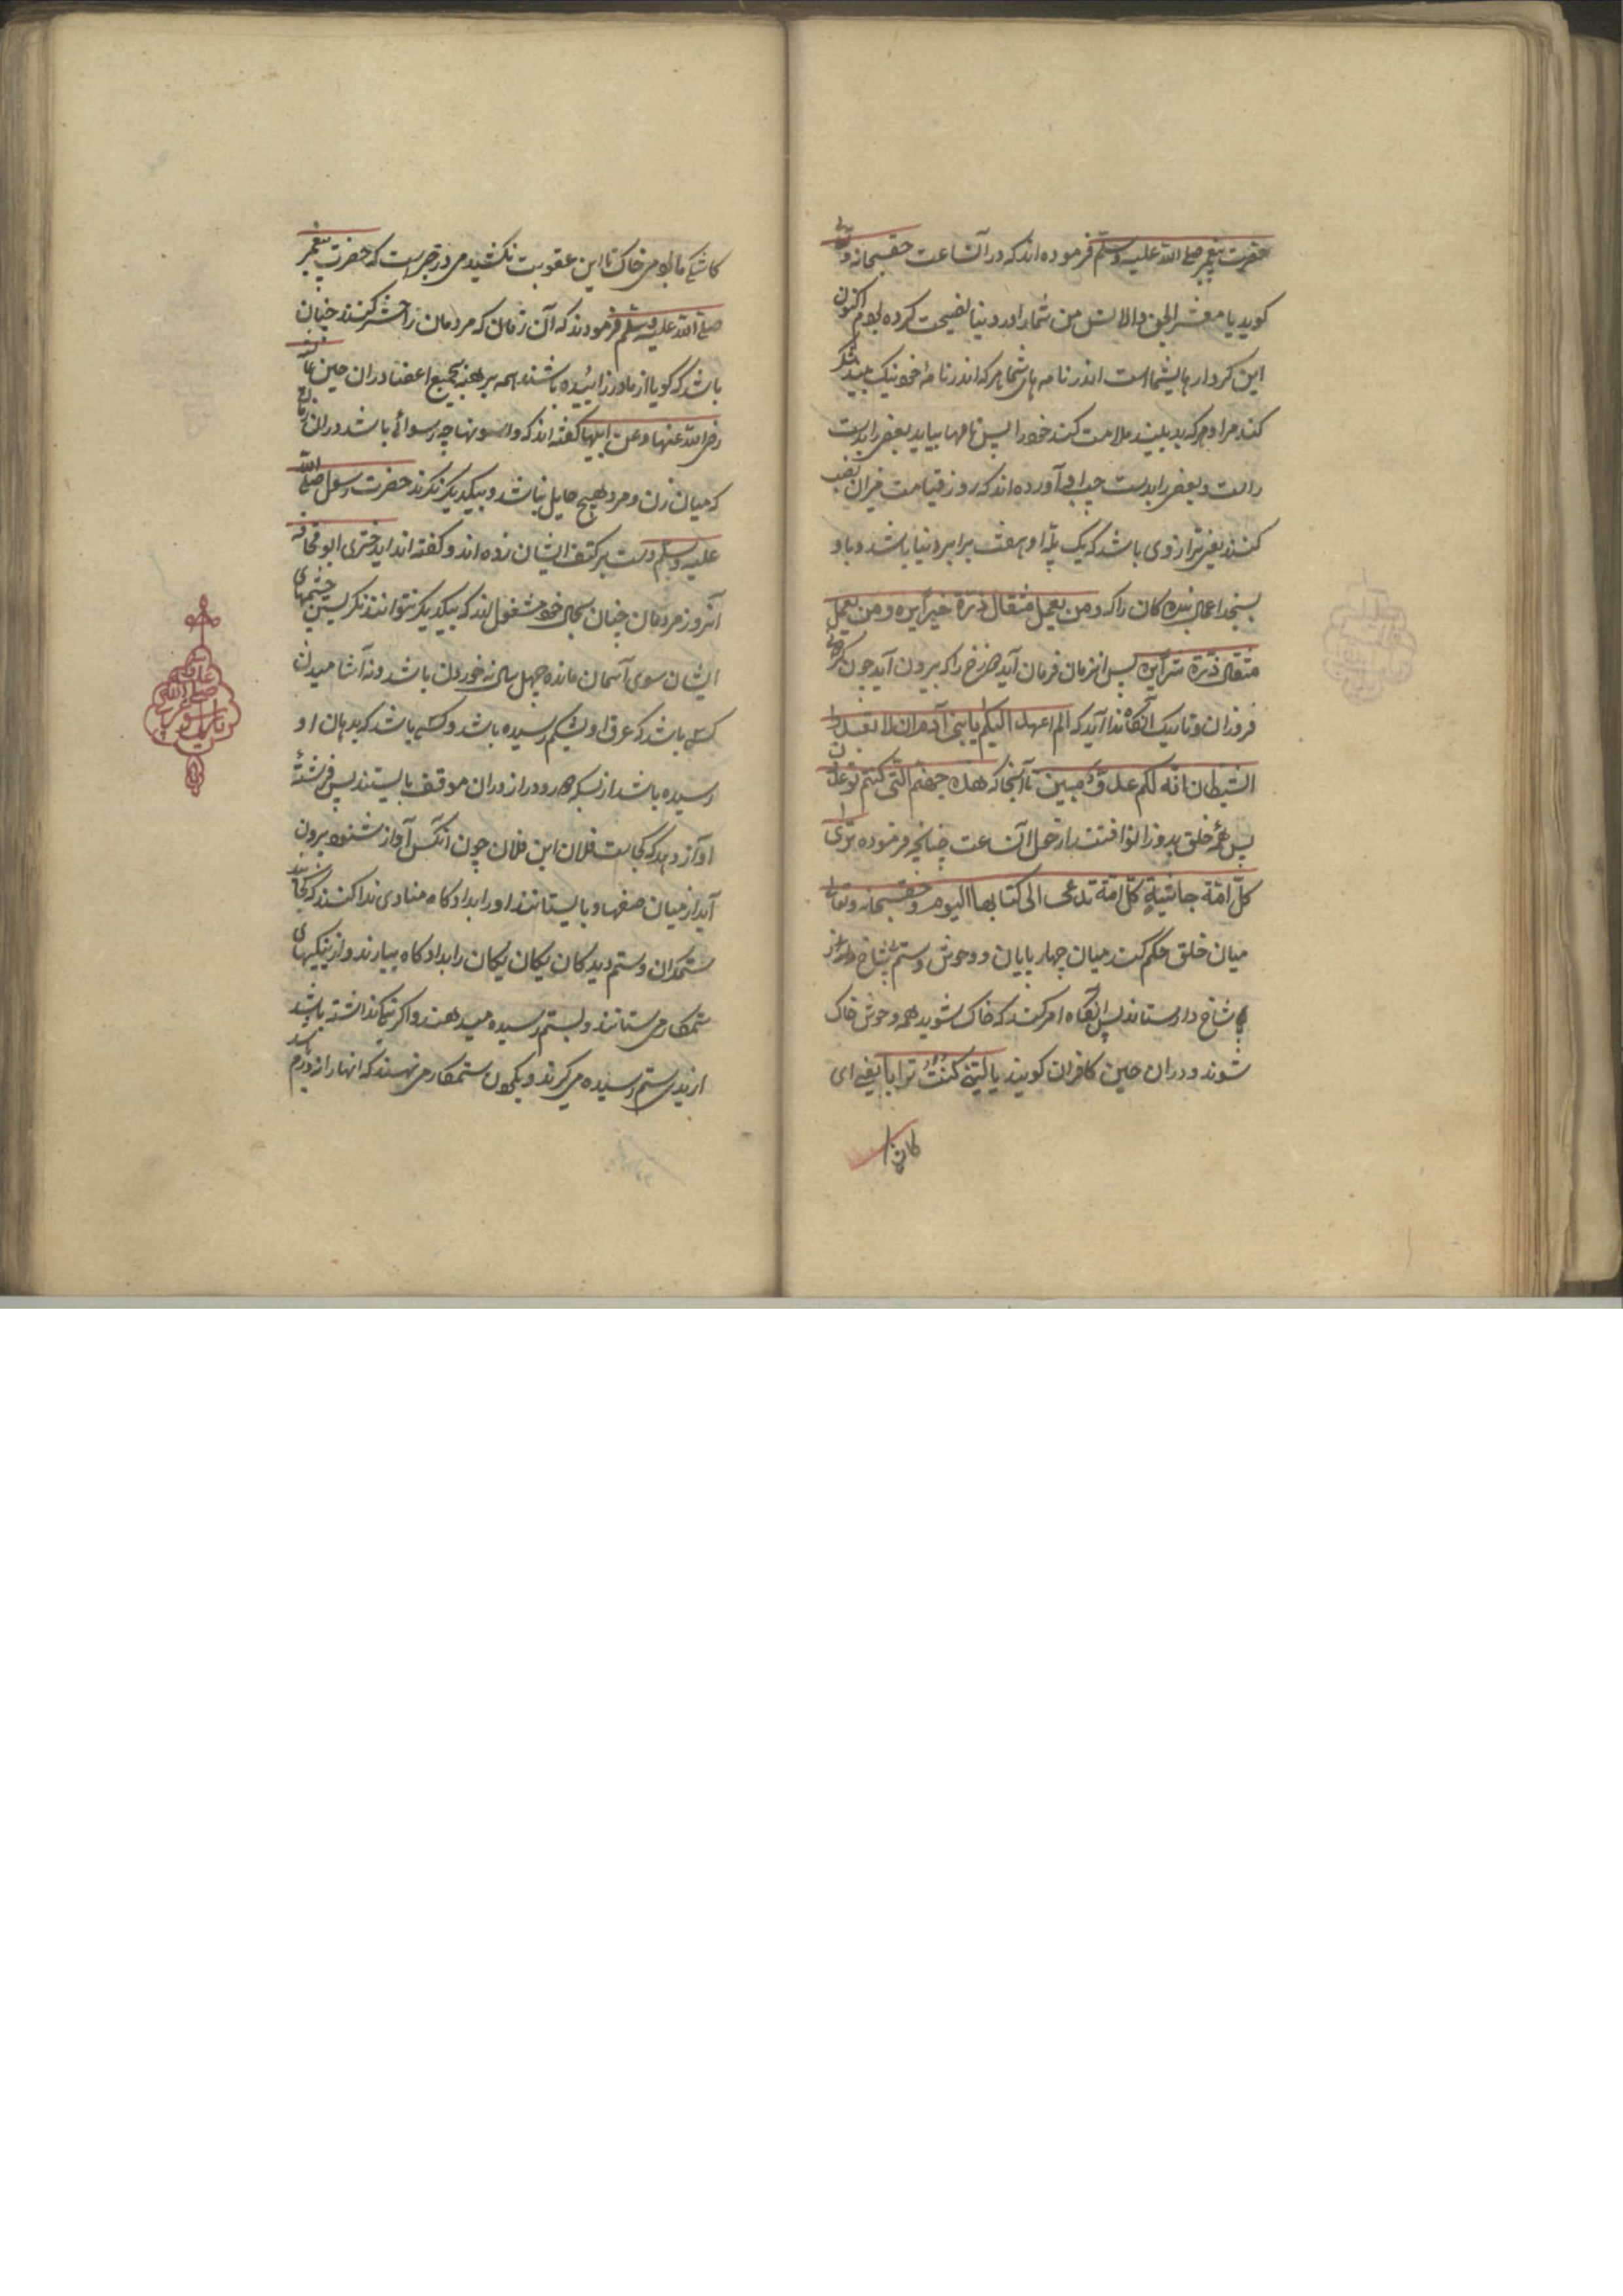 حضرت پیغمبر صلی الله علیه وسلم فرموده اند که در آن ساعت حقسبحانه وتعالی
کوید یا معشر الجن والانس من شمارا در دنیا نصیحت کرده بودم اکنون
این کردار هایشما است اندر نامه های شما هرکه اندر نامهٔ خود نیک بیند شکر
کند مرا وهرکه بد بیند ملامت کند خود را پس نامها بیاید بعضی را بدست
راست وبعضی را بدست چپ او آورده اند که روز قیامت میزان نصب
کنند یعنی ترازوی باشد که یک پلهٔ او هفت برابر دنیا باشد وباو
بسنجد اعمال بنده کان را که ومن یعمل مثقال ذرة خیرا یره ومن یعمل
مثقال ذرة شرا یره پس انزمان فرمان آید دوزخ را که بیرون آید چون
فروزان وتاریک انگاه ندا آید که الم اعهد الیکم یا بنی آدم ان لا تعبدوا
الشیطان انه لکم عدو مبین تا آنجا که هذه جهنم التی کنتم توعدون
پس همهٔ خلق بدو زانو افتند از هول آن ساعت چنانچه فرموده وتری
کل امة جاثیة کل امة تدعی الی کتابها الیوم وحقسبحانه وتعالی
میان خلق حکم کند میان چهار پایان و وحوش وستم شاخ دار از
بی شاخ دار وستاند پس انگاه امر کند که خاک شوید همه وحوش خاک
شوند ودران حین کافران کویند یا لیتنی کنت ترابا یعنی ای
کاش
کاشکی ما بودمی خاک تا این عقوبت نکشیدمی در خبر است که حضرت پیغمبر
صلی الله علیه وسلم فرمودند که آن زمان که مردمان را حشر کنند چنان
باشد که کویا از مادر زائیده باشند همه برهنه بجمیع اعضا دران حین عایشه
رضی الله عنها وعن ابیها کفته اند که واسوتها چه رسوائی باشد دران زمان
که میان زن ومرد هیچ حایل نباشد وبیکدیکر نکرند حضرت رسول صلی الله
علیه وسلم دست بر کتف ایشان زده اند وکفته اند اید ختری ابو قحافه
آنروز مردمان چنان بحال خود مشغول اند که بیکدیکر نتوانند نکریستن چشمهای
ایشان سوی آسمان مانده چهل سال نه خوردن باشد ونه آشامیدن
کسی باشد که عرق او بشکم رسیده باشد وکسی باشد که بدهان او
رسیده باشد از بسکه دور ودراز دران موقف بایستند پس فرشتهٔ
اواز دهد که کجاست فلان ابن فلان چون آنکس آواز شنود بیرون
آید از میان صفها وبایستانند او را بدادکاه منادی ندا کنند که کجا شدند
ستمکران وستم دیدکان یکان یکان را بدادکاه بیارند واز نیکیهای
ستمکار می ستانند وبستم رسیده میدهند واکر نیکی نداشته باشد
از بدی ستم رسیده می کیرند وبکردن ستمکار می نهند که انها را نه درم باشد